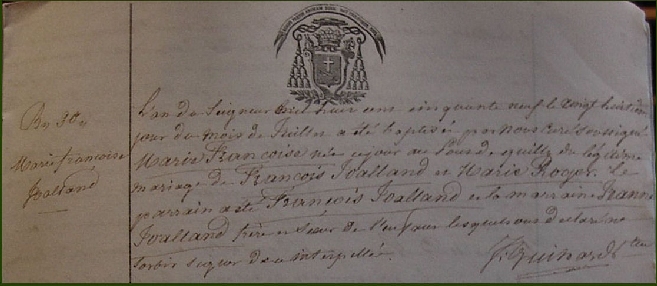 Bn 30e
Marie françoise
Joalland
L'an du Seigneur mil huit cent cinquante neuf le vingt huitième
jour du mois de Juillet a été baptisée par nous curé soussigné
Marie Françoise née ce jour au bourg, du légitime
mariage de François Joalland et Marie Roger. Le
parrain a été François Joalland et la marraine Jeanne
Joalland frère et sœur de l'enfant lesquels ont déclaré ne
savoir signer de ce interpellés
J. Guihard